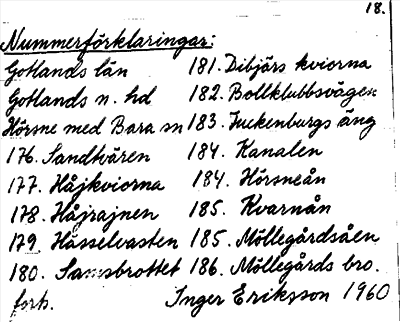 18.
Nummerförklaringar:
Gotlands län
Gotlands n. hd
Hörsne med Bara sn
176. Sandtvären
177. Håjkviorna
178. Håjrajnen
179. Hässelvasten
180. Samsbrottet
forts.
181. Dibjärs kviorna
182. Bollklubbsvägen
183. Juckenburgs äng
184. Kanalen
184. Hörsneån
185. Kvarnån
185. Möllegårdsåen
186. Möllegårds bro.
Inger Eriksson 1960